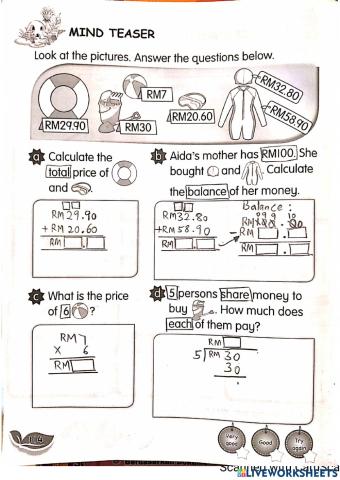 MIND TEASER
Look at the pictures. Answer the questions below.
RM29.90
RM7
RM30
RM20.60
RM32.80
RM58.90
a Calculate the
total price of
and
RM29.90
+ RM 20.60
RM .
b Aida's mother has RM100. She
bought and . Calculate
the balance of her money.
RM32.80
+RM58.90
RM .
Balance :
09 9 10
- RM .
RM .
c What is the price
of 6 ?
RM 7
x 6
RM
d 5 persons share money to
buy . How much does
each of them pay?
RM
5 RM 30
30
Very good
Good
Try again
LIVEWORKSHEETS